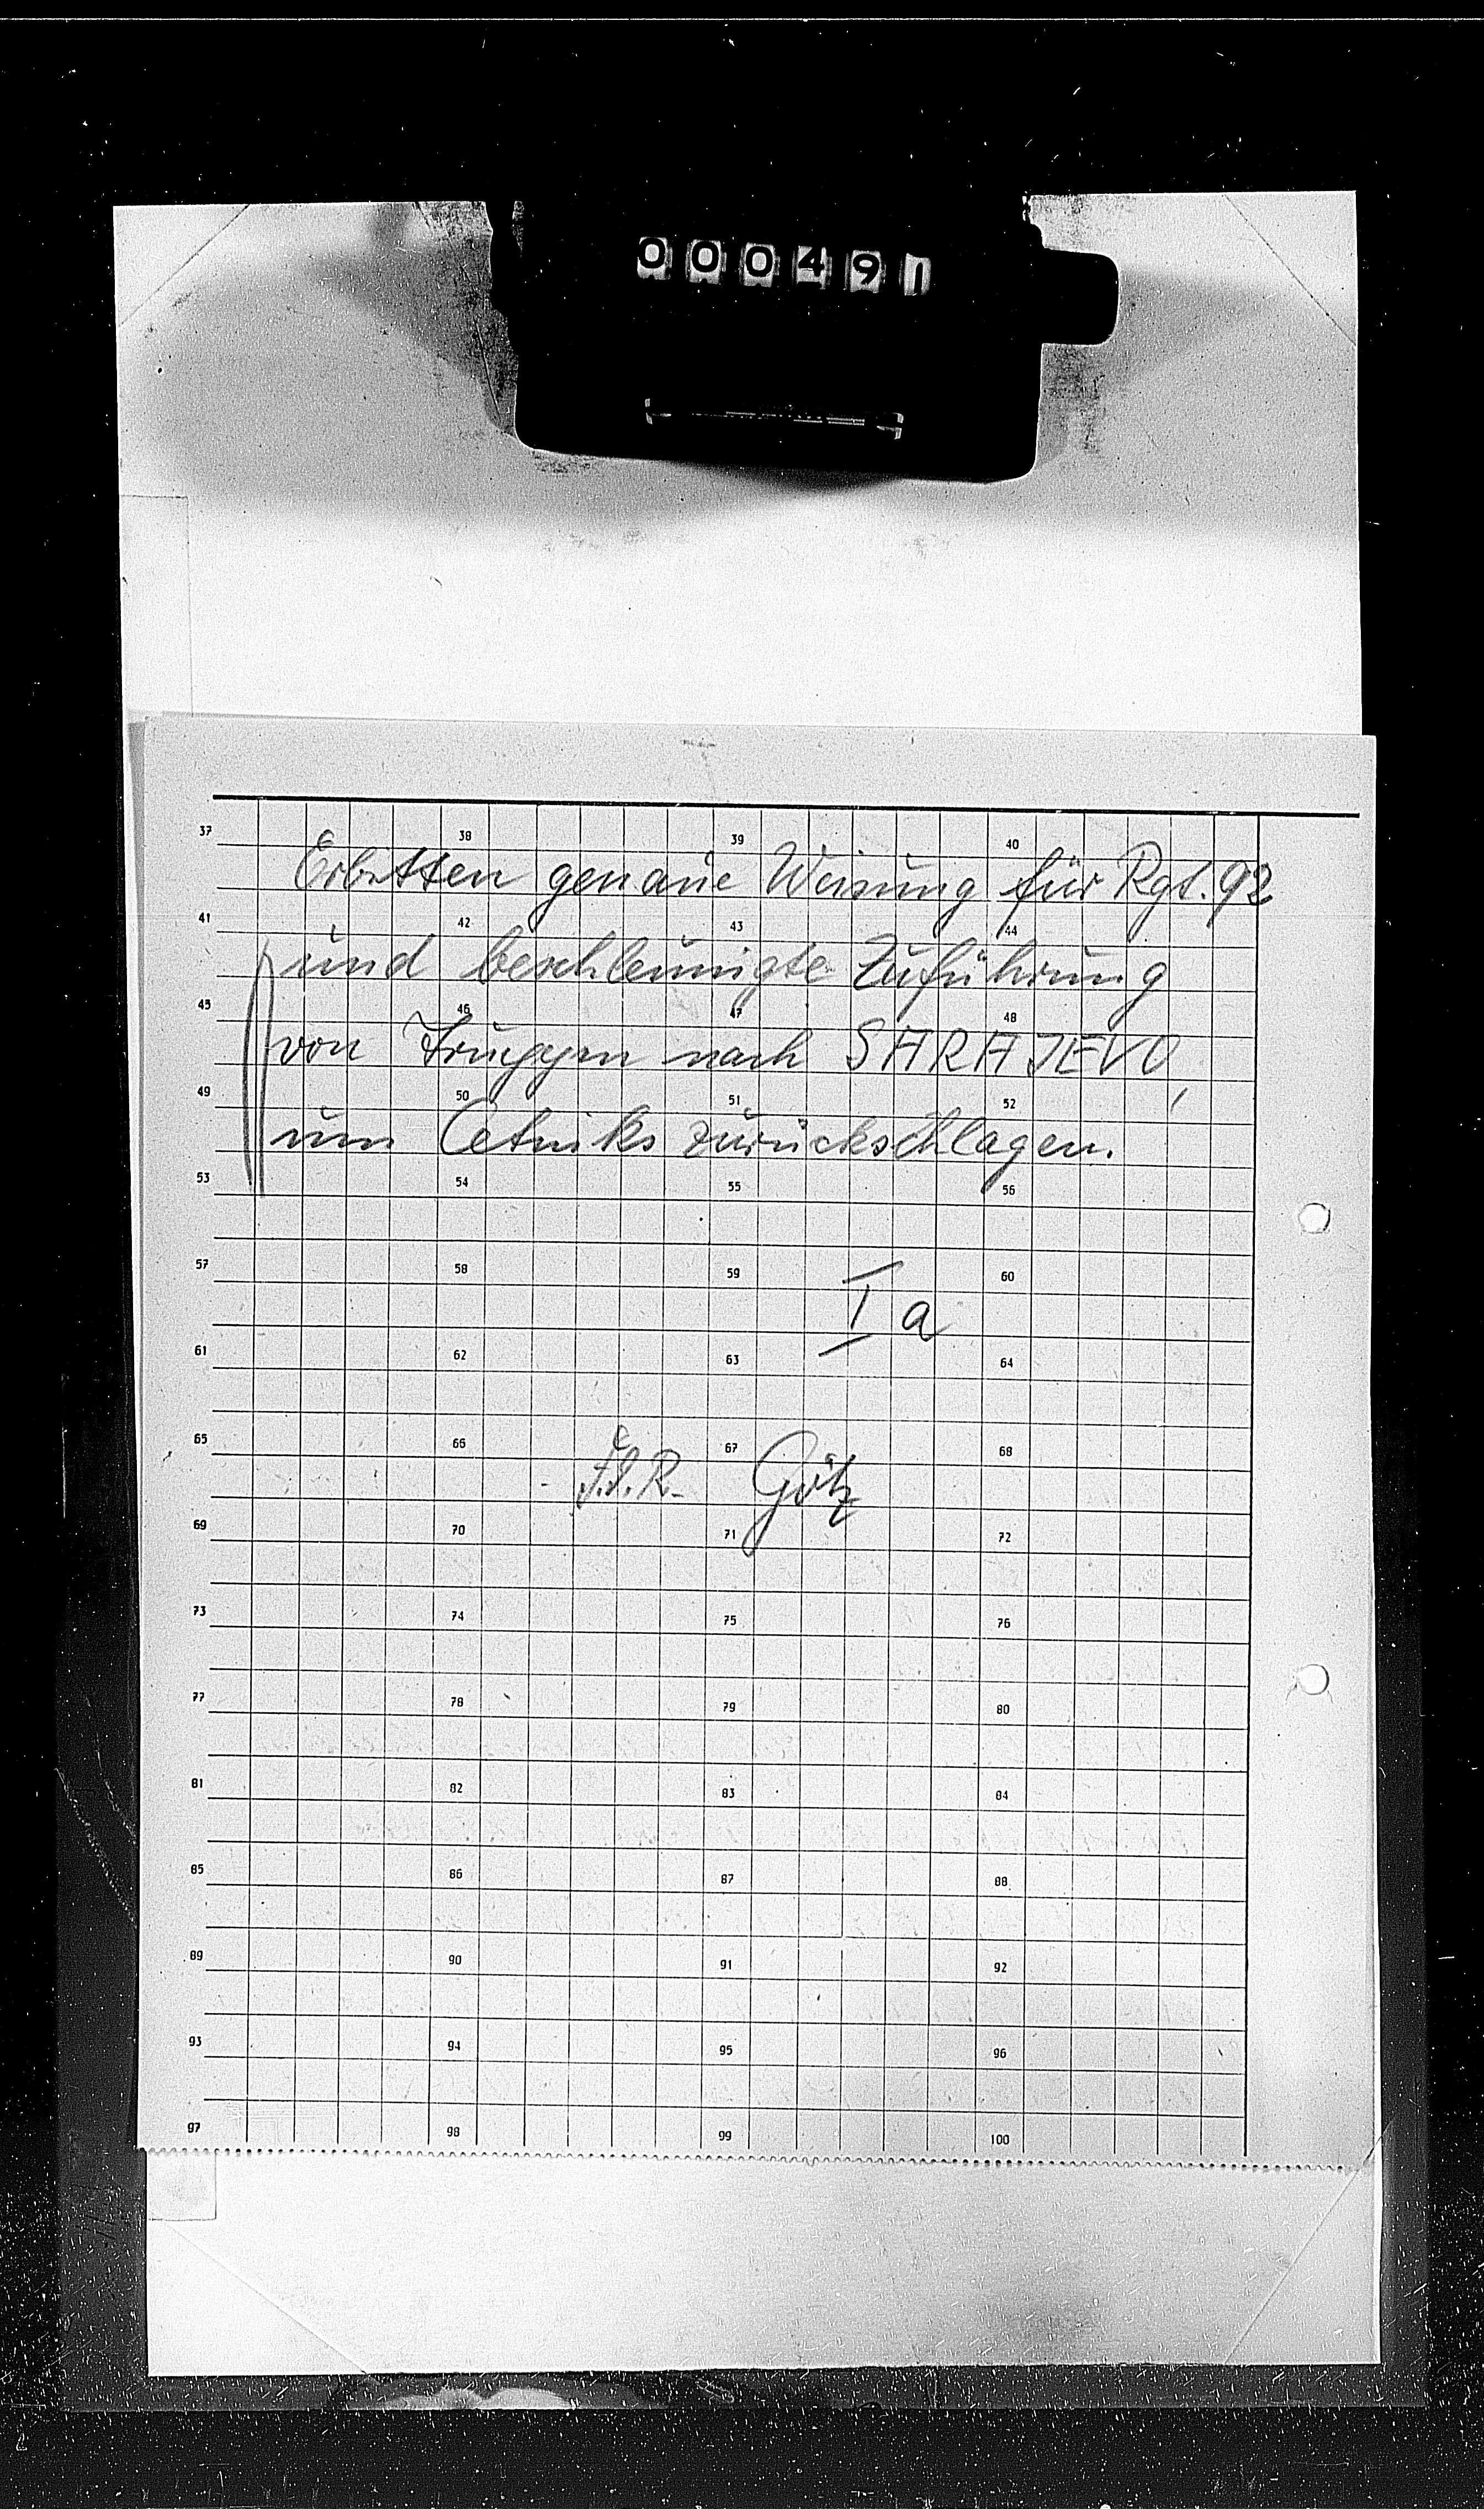 000491
37 38 39 40
Erbitten genaue Weisung für Rgt. 92
41 42 43 44
und beschleunigte Zuführung
45 46 47 48
von Truppen nach SARAJEVO,
49 50 51 52
um Cetniks zurückschlagen.
53 54 55 56
57 58 59 60
I a
61 62 63 64
65 66 67 68
F.d.R. Götz
69 70 71 72
73 74 75 76
77 78 79 80
81 82 83 84
85 86 87 88
89 90 91 92
93 94 95 96
97 98 99 100